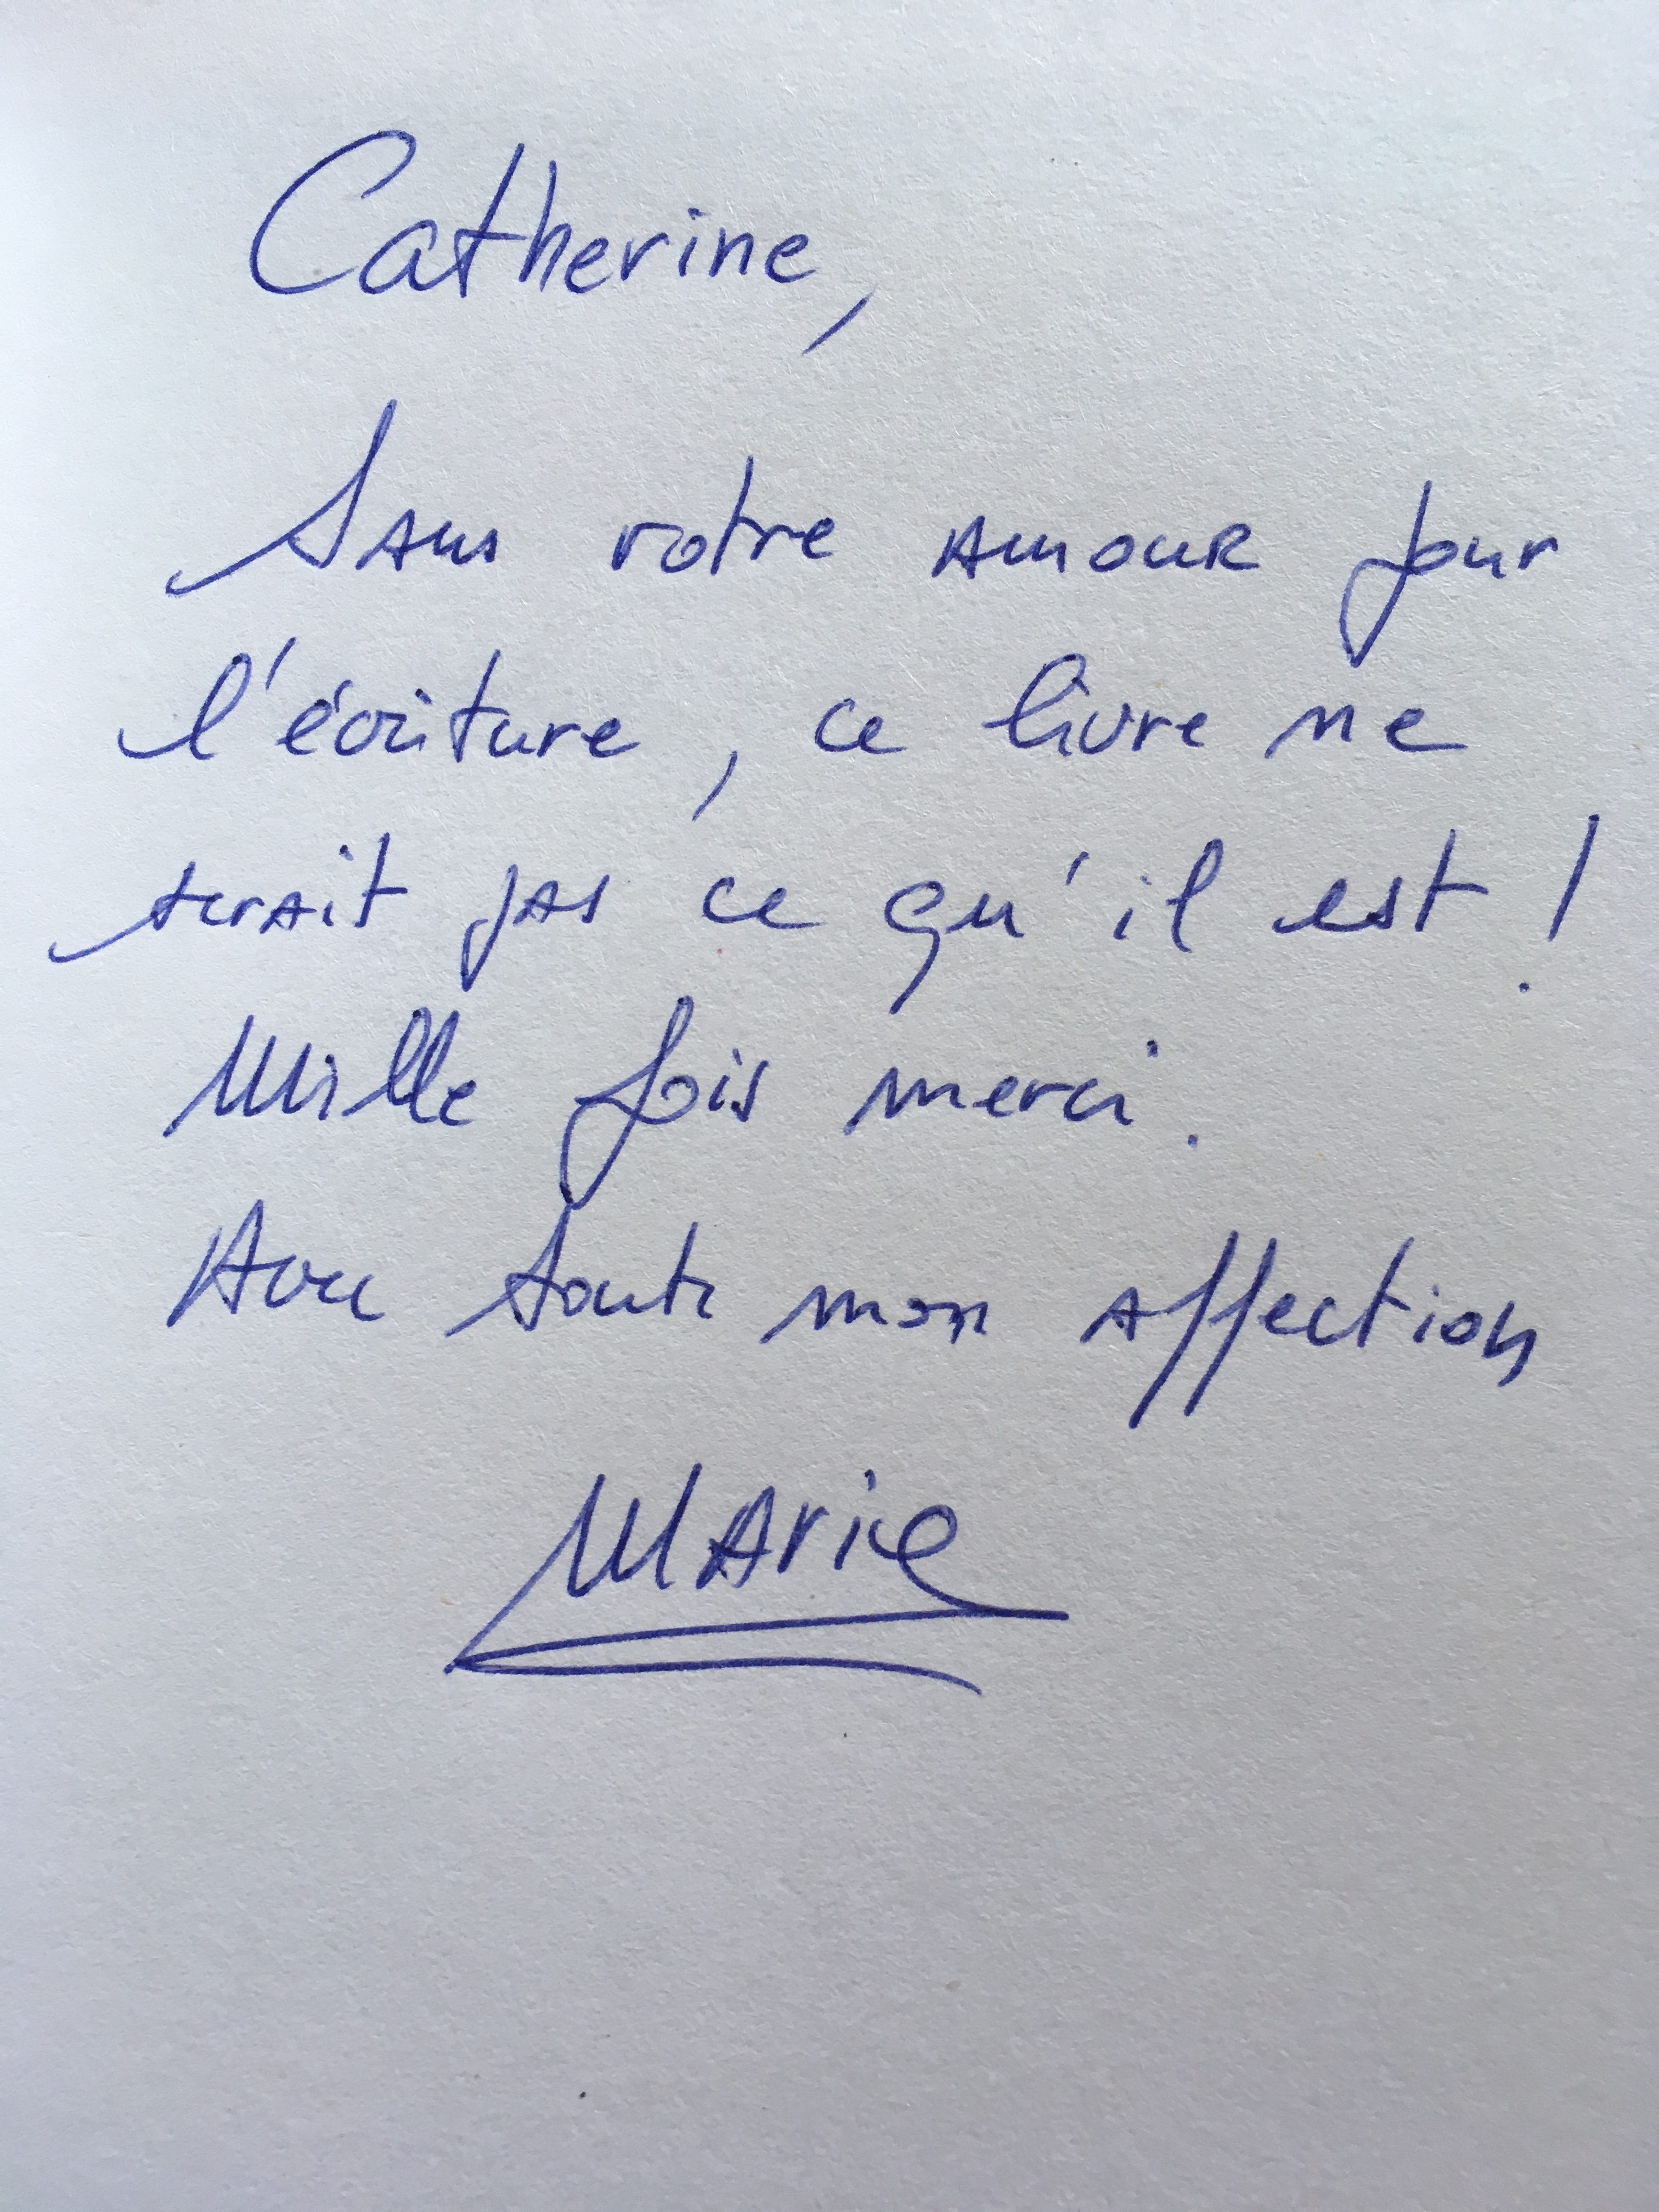 Catherine,
Sans votre amour pour
l'écriture, ce livre ne
serait pas ce qu'il est !
Mille fois merci.
Avec toute mon affection
Marie